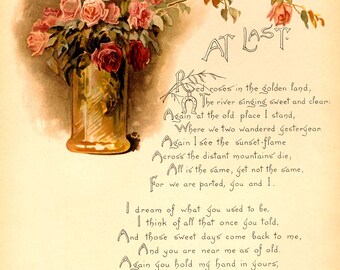 AT LAST.
Red roses in the golden land,
The river singing sweet and clear:
Again at the old place I stand,
Where we two wandered yesteryear.
Again I see the sunset-flame
Across the distant mountains die;
All is the same, yet not the same,
For we are parted, you and I.
I dream of what you used to be,
I think of all that once you told,
And those sweet days come back to me,
And you are near me as of old.
Again you hold my hand in yours,